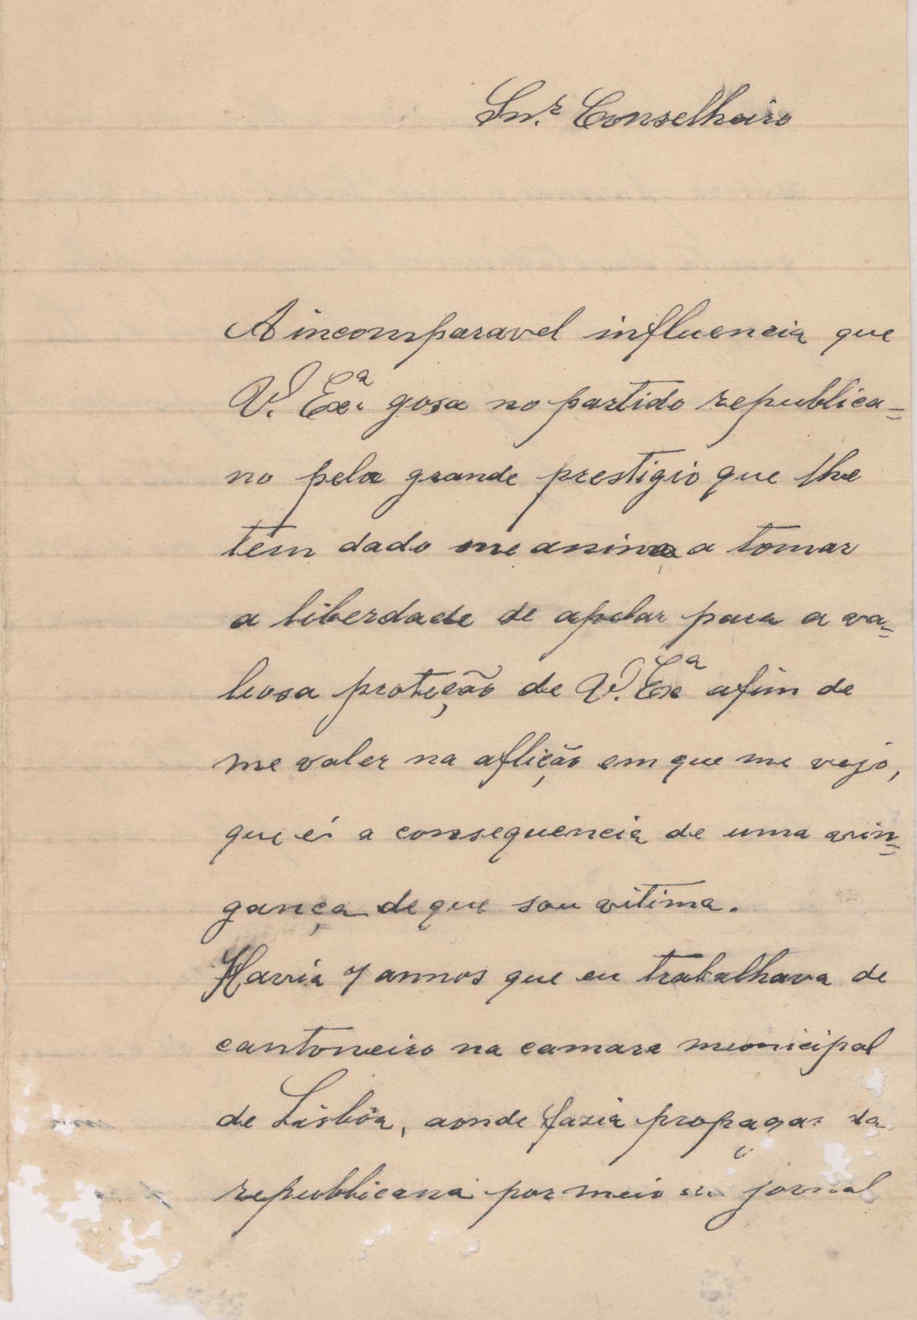 Snr. Conselheiro
A incomparavel influencia que
V. Exa. gosa no partido republica=
no pelo grande prestigio que lhe
tem dado me anima a tomar
a liberdade de apelar para a va=
liosa proteção de V. Exa afim de
me valer na aflição em que me vejo,
que é a consequencia de uma vin=
gança de que sou vitima.
Havia 7 annos que eu trabalhava de
cantoneiro na camara municipal
de Lisbôa, aonde fazia
republicana por meio jornal